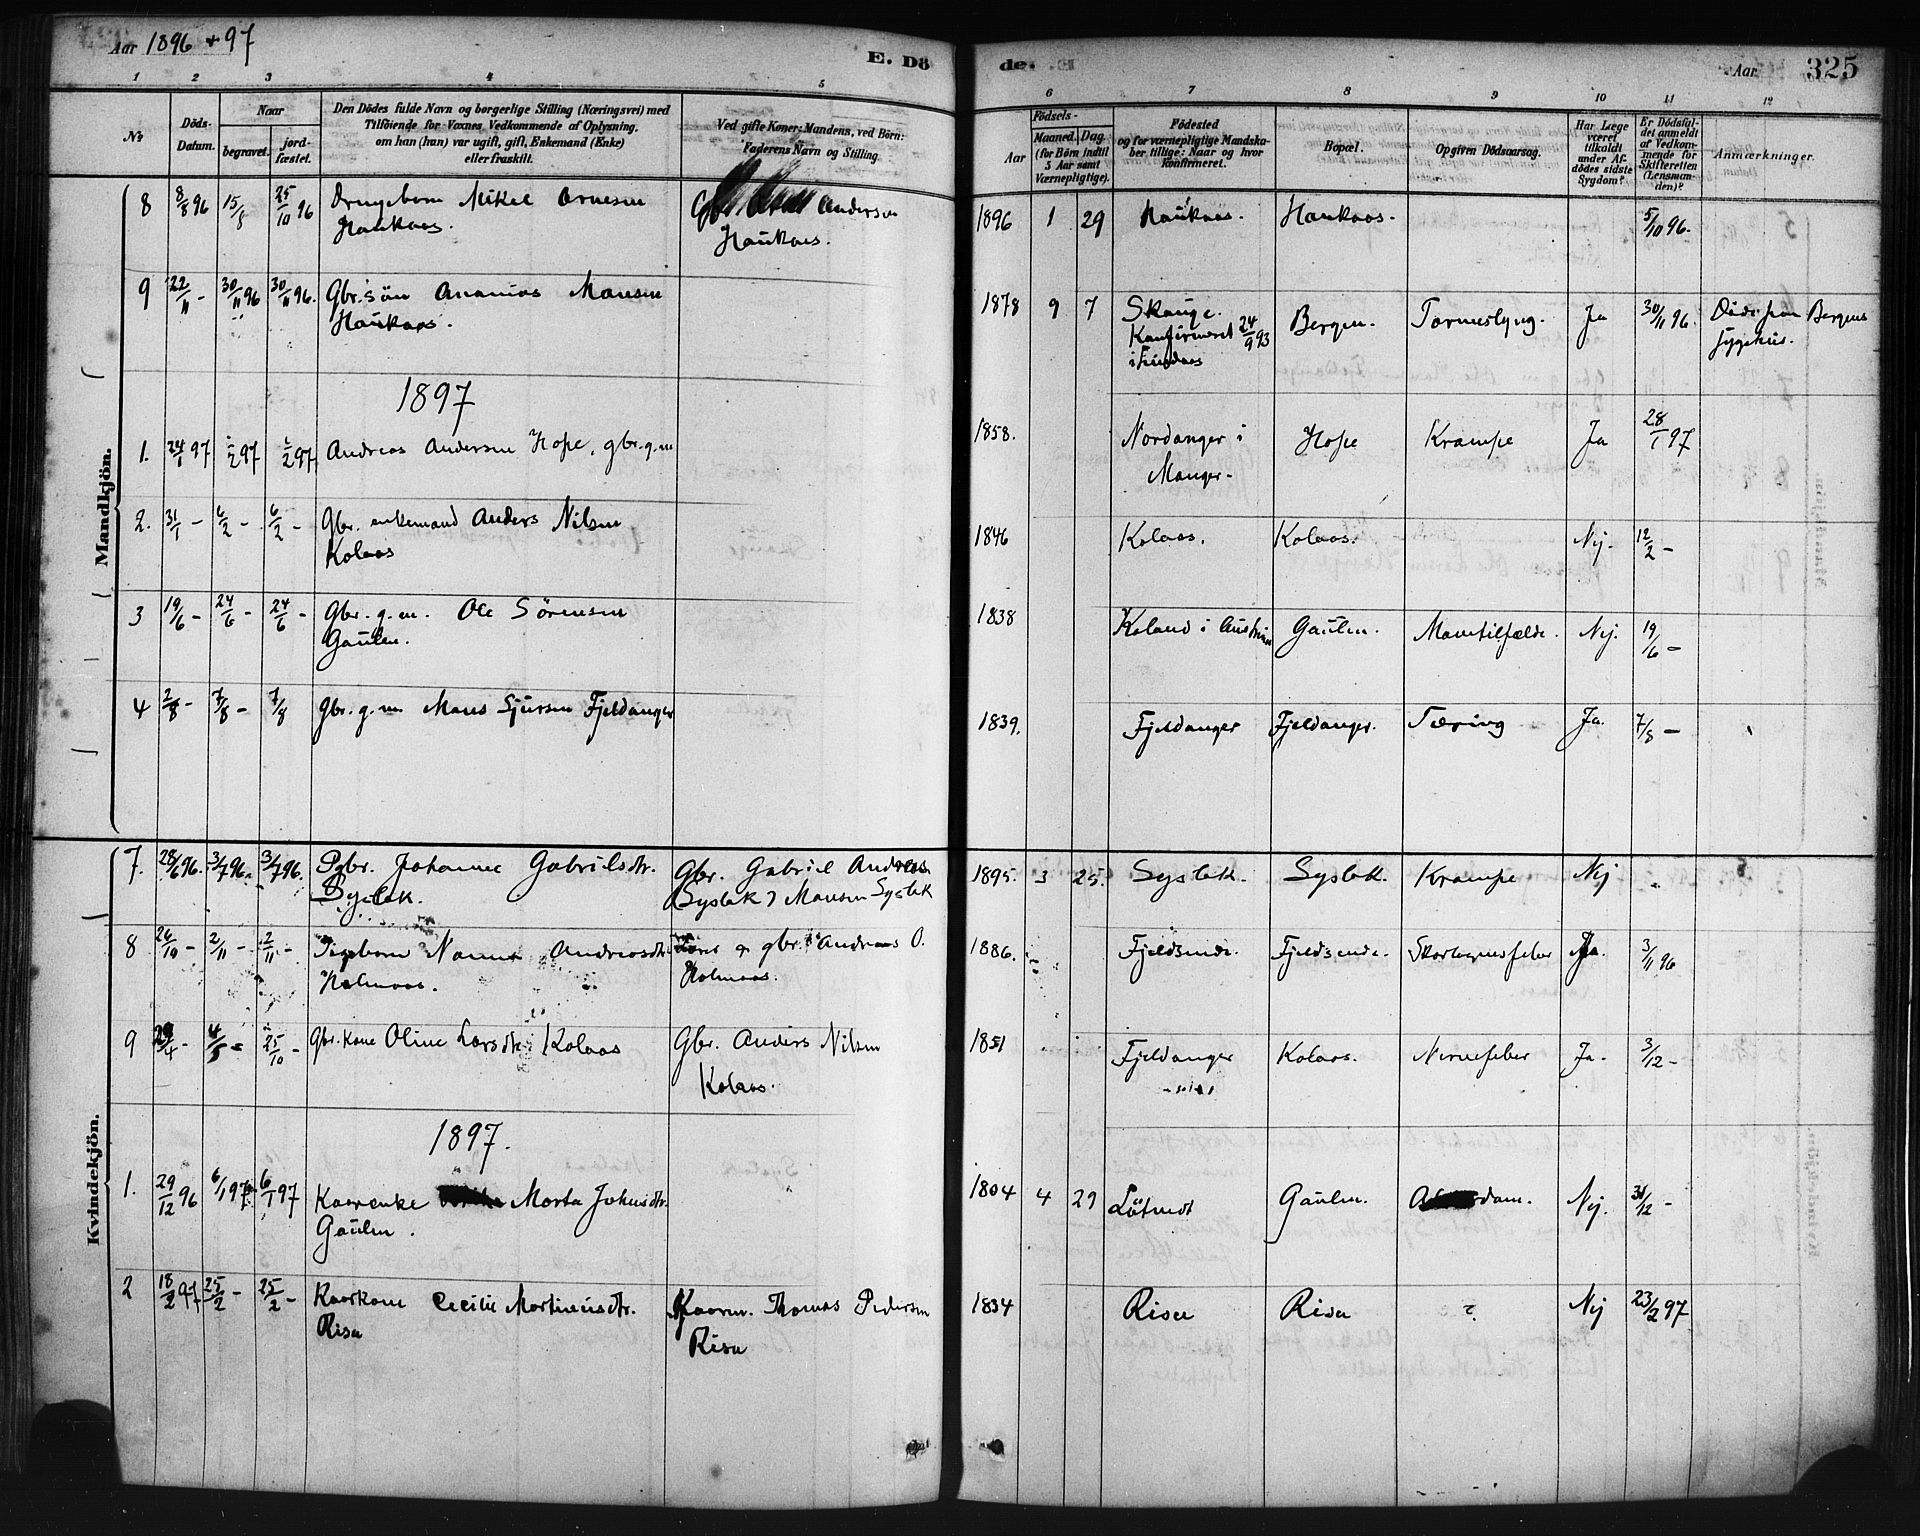 Aar 1896 + 97
E. Dö
de.
Aar
325
1 2 3 4 5 6 7 8 9 10 11 12
No
Döds-Datum.
Naar
begravet.
jordfæstet.
Den Dödes fulde Navn og borgerlige Stilling (Næringsvei) med
Tilföiende for Voxnes Vedkommende af Oplysning,
om han (hun) var ugift, gift, Enkemand (Enke)
eller fraskilt.
Ved gifte Koner: Mandens, ved Börn:
Faderens Navn og Stilling
Födsels-
Aar
Maaned. Dag
(for Börn indtil
5 Aar samt
Værnepligtige).
Födested
og for værnepligtige Mandska-
ber tillige: Naar og hvor
konfirmeret.
Bopæl.
Opgiven Dödsaarsag.
Har Læge
været
tilkaldt
under Af-
dödes sidste
Sygdom?
Er Dödsfal-
det anmeldt
af Vedkom-
mende for
Skifteretten
(Lensman-
den)?
Anmærkninger.
Mandkjön.
8 8/8 96 15/8 25/10 96 Drengebarn Mikal Arnesen Gbr. Andersen 1896 1 29 Haukaas. Haukaas. 5/10 96.
Haukaas. Haukaas.
9 22/11 - 30/11 96 30/11 96. Gbr. sön Ananias Monsen 1878 9 7 Skauge. Bergen. Tarmeslyng. Ja 30/11 96. Döde paa Bergens
Haukaas. Konfirmeret 24/9 93 Sygehus.
i Lindaas
1897
1. 24/1 97 1/2 97 1/2 97 Andreas Andersen Hope, gbr. g.m 1858. Nordanger i Hope Krampe Ja 28/1 97
Manger-
2. 31/1 - 6/2 - 6/2 - Gbr. enkemand Anders Nilsen 1846 Kolaas. Kolaas. Nej. 12/2 -
Kolaas
3 19/6 - 24/6 - 24/6 - Gbr. g.m. Ole Sörensen 1838 Koland i Gaulen. Mavetilfælde. Nej. 19/6 -
Gaulen.
4 2/8 - 7/8 - 7/8 Gbr. g.m Mons Sjursen Fjeldanger 1839. Fjeldanger Fjeldanger. Tæring Ja. 7/8 -
Kvindekjön.
7. 28/6 96. 3/7 96. 3/7 96. Pgbr. Johanne Gabrielsdtr. Gbr. Gabriel Andreas 1895. 3 25. Syslak. Syslak. Krampe Nej
Syslak. (Syslak) Monsen Syslak
8 26/10 - 2/11 - 2/11 - Pigebarn Nanna Andreasdtr. gbr. Andreas O. 1886. Fjeldsende. Fjeldsende. Skarlagensfeber Ja. 3/11 96
Holmaas. Holmaas.
9 29/4 - 4/5 - 25/10 - Gbr. kone Oline Larsdtr. Kolaas Gbr. Anders Nilsen 1851 Fjeldanger Kolaas. Nervefeber Ja. 3/12 -
Kolaas.
1897.
1. 29/12 96 6/1 97 6/1 97 Kaarenke Marta Johnsdtr. 1804 4 29 Gaulen. Nej. 31/12 -
Gaulen.
2 18/2 97 25/2 - 25/2 - Kaarkone Cecilie Martinusdtr. Kaarm. Thomas Pedersen 1834 Risa Risa ? Nej 23/2 97
Risa Risa